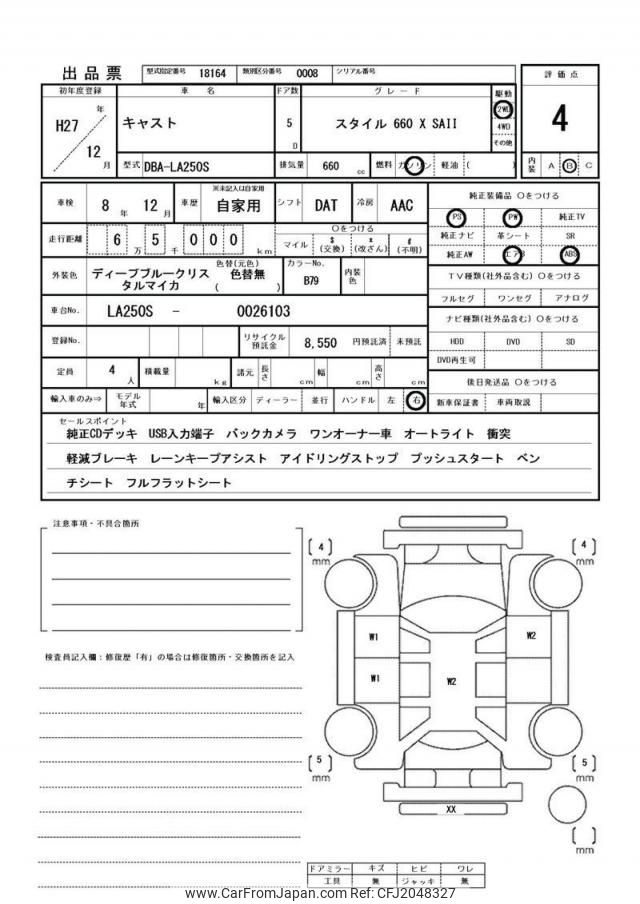 出品票 型式指定番号 18164 類別区分番号 0008 シリアル番号
評価点
4
初年度登録 車名 ドア数 グレード 駆動
H27 年 12 月
キャスト 5 D スタイル 660 X SAII
2WD
4WD
その他
型式 DBA-LA250S 排気量 660 cc 燃料 ガソリン 軽油 ( )
内装 A B C
車検 8 年 12 月 車歴 ※未記入は自家用 自家用 シフト DAT 冷房 AAC
純正装備品 Oをつける
PS PW 純正TV
純正ナビ 革シート SR
純正AW エアB ABS
走行距離 6 万 5 千 0 0 0 km
Oをつける
マイル $ (交換) * (改ざん) # (不明)
外装色 ディープブルークリスタルマイカ 色替(元色) 色替無 ( )
カラーNo. B79 内装色
TV種類(社外品含む) Oをつける
フルセグ ワンセグ アナログ
車台No. LA250S - 0026103
ナビ種類(社外品含む) Oをつける
HDD DVD SD
DVD再生可
登録No. リサイクル預託金 8,550 円預託済 未預託
定員 4 人 積載量 kg 諸元 長さ cm 幅 cm 高さ cm
後日発送品 Oをつける
新車保証書 車両取説
輸入車のみ⇒ モデル年式 年 輸入区分 ディーラー 並行 ハンドル 左 右
セールスポイント
純正CDデッキ USB入力端子 バックカメラ ワンオーナー車 オートライト 衝突
軽減ブレーキ レーンキープアシスト アイドリングストップ プッシュスタート ベン
チシート フルフラットシート
注意事項・不具合箇所
検査員記入欄：修復歴「有」の場合は修復箇所・交換箇所を記入
4 mm
4 mm
W1 W2
W1 W2
5 mm
5 mm
XX
mm
ドアミラー キズ ヒビ ワレ
工具 無 ジャッキ 無
www.CarFromJapan.com Ref:ID CFJ2048327